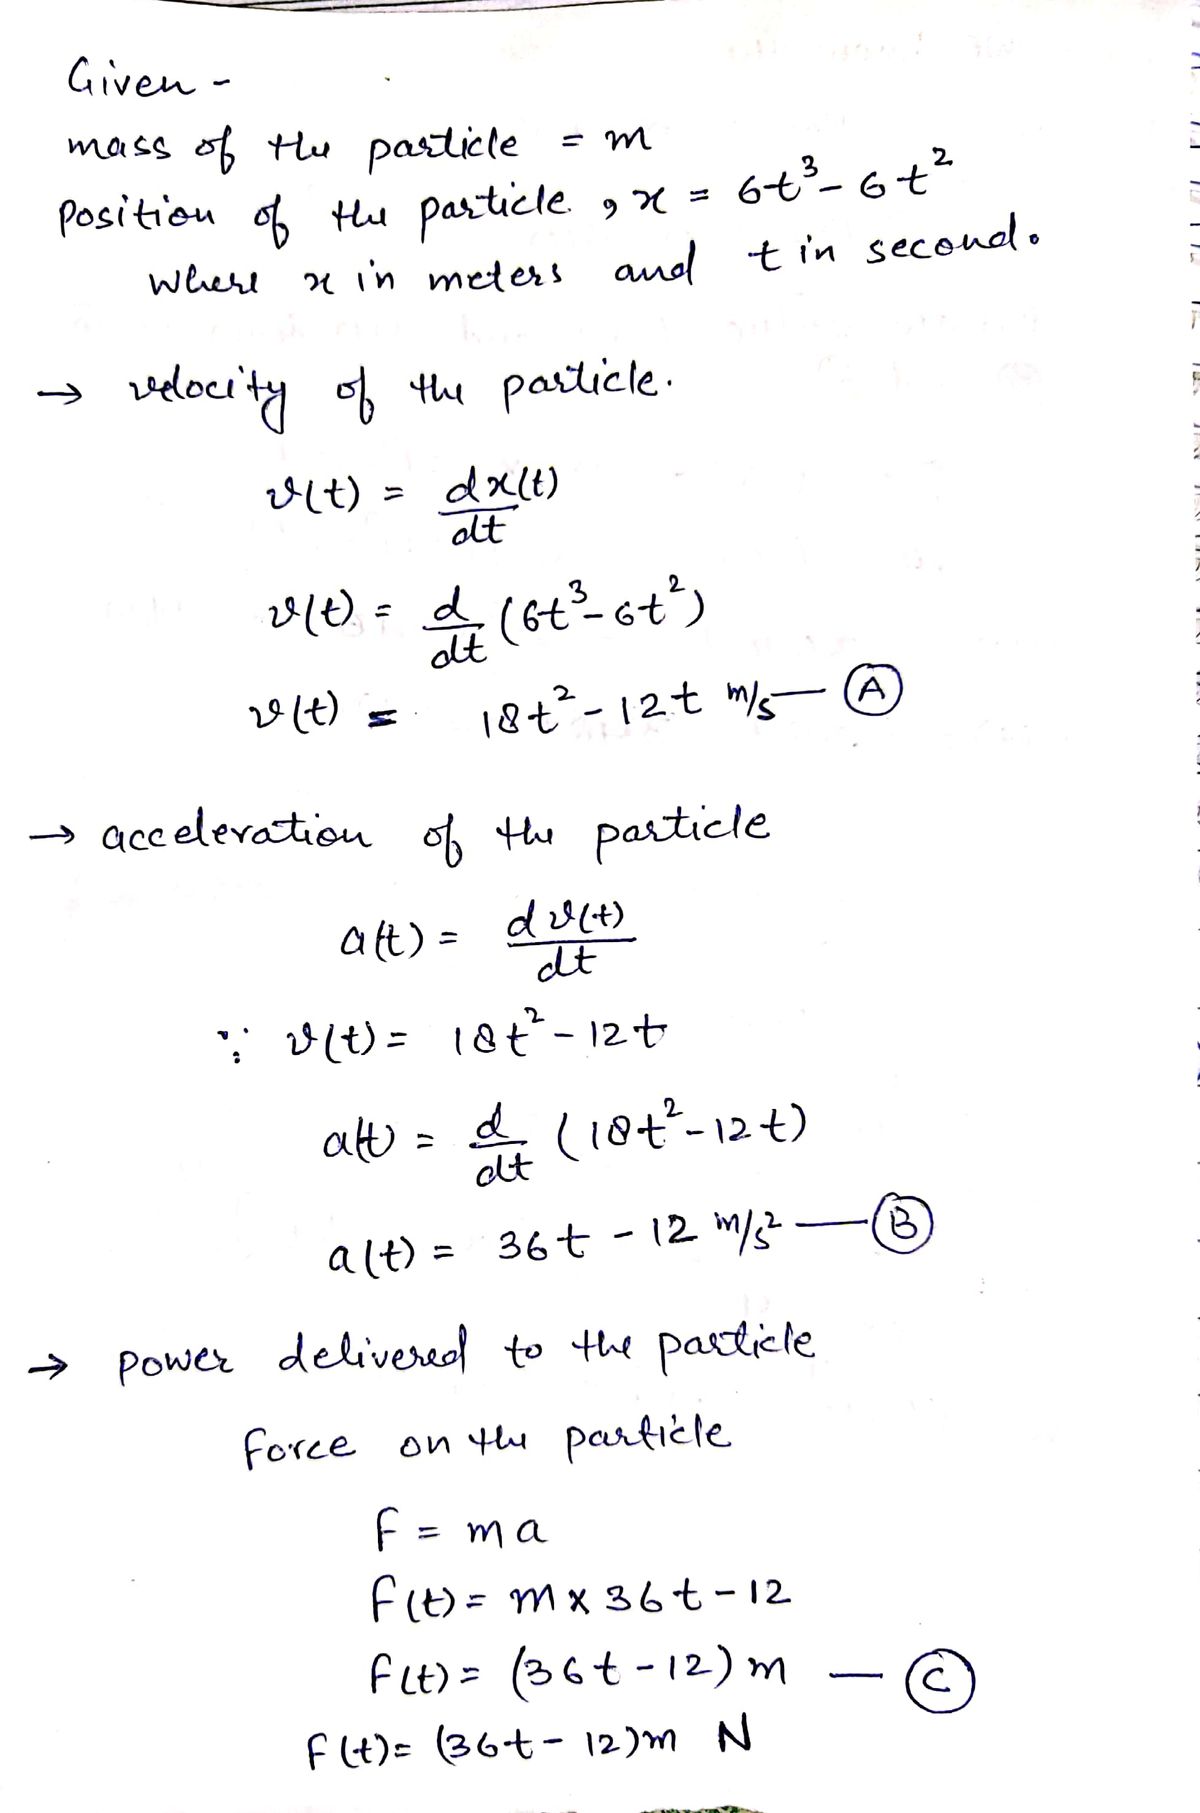 Given -
mass of the particle = m
Position of the particle, x = 6t³ - 6t²
where x in meters and t in second.
→ velocity of the particle.
v(t) = dx(t)/dt
v(t) = d/dt (6t³ - 6t²)
v(t) = 18t² - 12t m/s — Ⓐ
→ acceleration of the particle
a(t) = dv(t)/dt
∵ v(t) = 18t² - 12t
a(t) = d/dt (18t² - 12t)
a(t) = 36t - 12 m/s² — Ⓑ
→ power delivered to the particle
force on the particle
F = ma
F(t) = m x 36t - 12
F(t) = (36t - 12) m — Ⓒ
F(t) = (36t - 12)m N